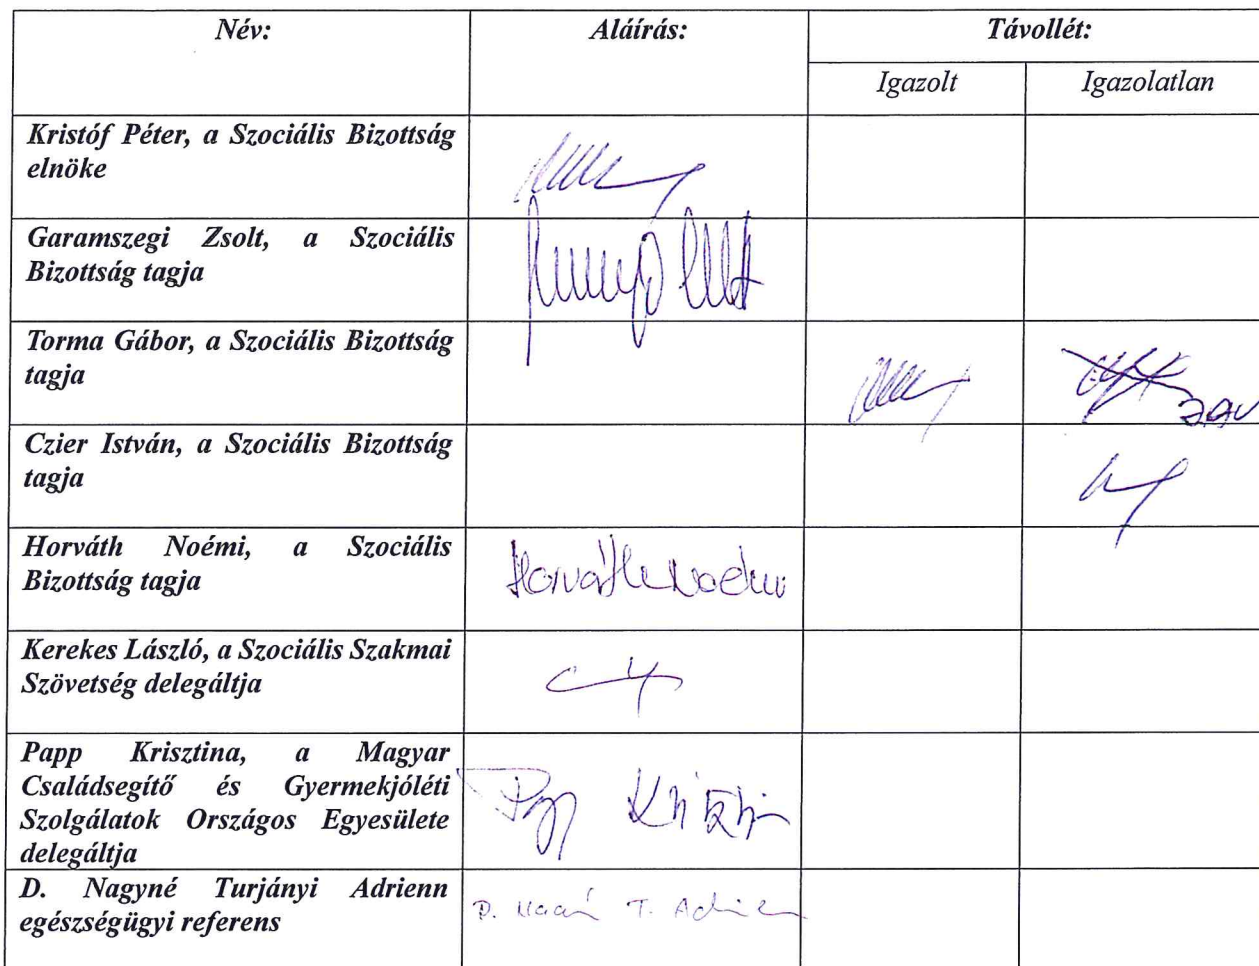 Név: Aláírás: Távollét:
Igazolt Igazolatlan
Kristóf Péter, a Szociális Bizottság
elnöke
Garamszegi Zsolt, a Szociális
Bizottság tagja
Torma Gábor, a Szociális Bizottság
tagja
Czier István, a Szociális Bizottság
tagja
Horváth Noémi, a Szociális
Bizottság tagja
Horváth Noémi
Kerekes László, a Szociális Szakmai
Szövetség delegáltja
Papp Krisztina, a Magyar
Családsegítő és Gyermekjóléti
Szolgálatok Országos Egyesülete
delegáltja
D. Nagyné Turjányi Adrienn
egészségügyi referens